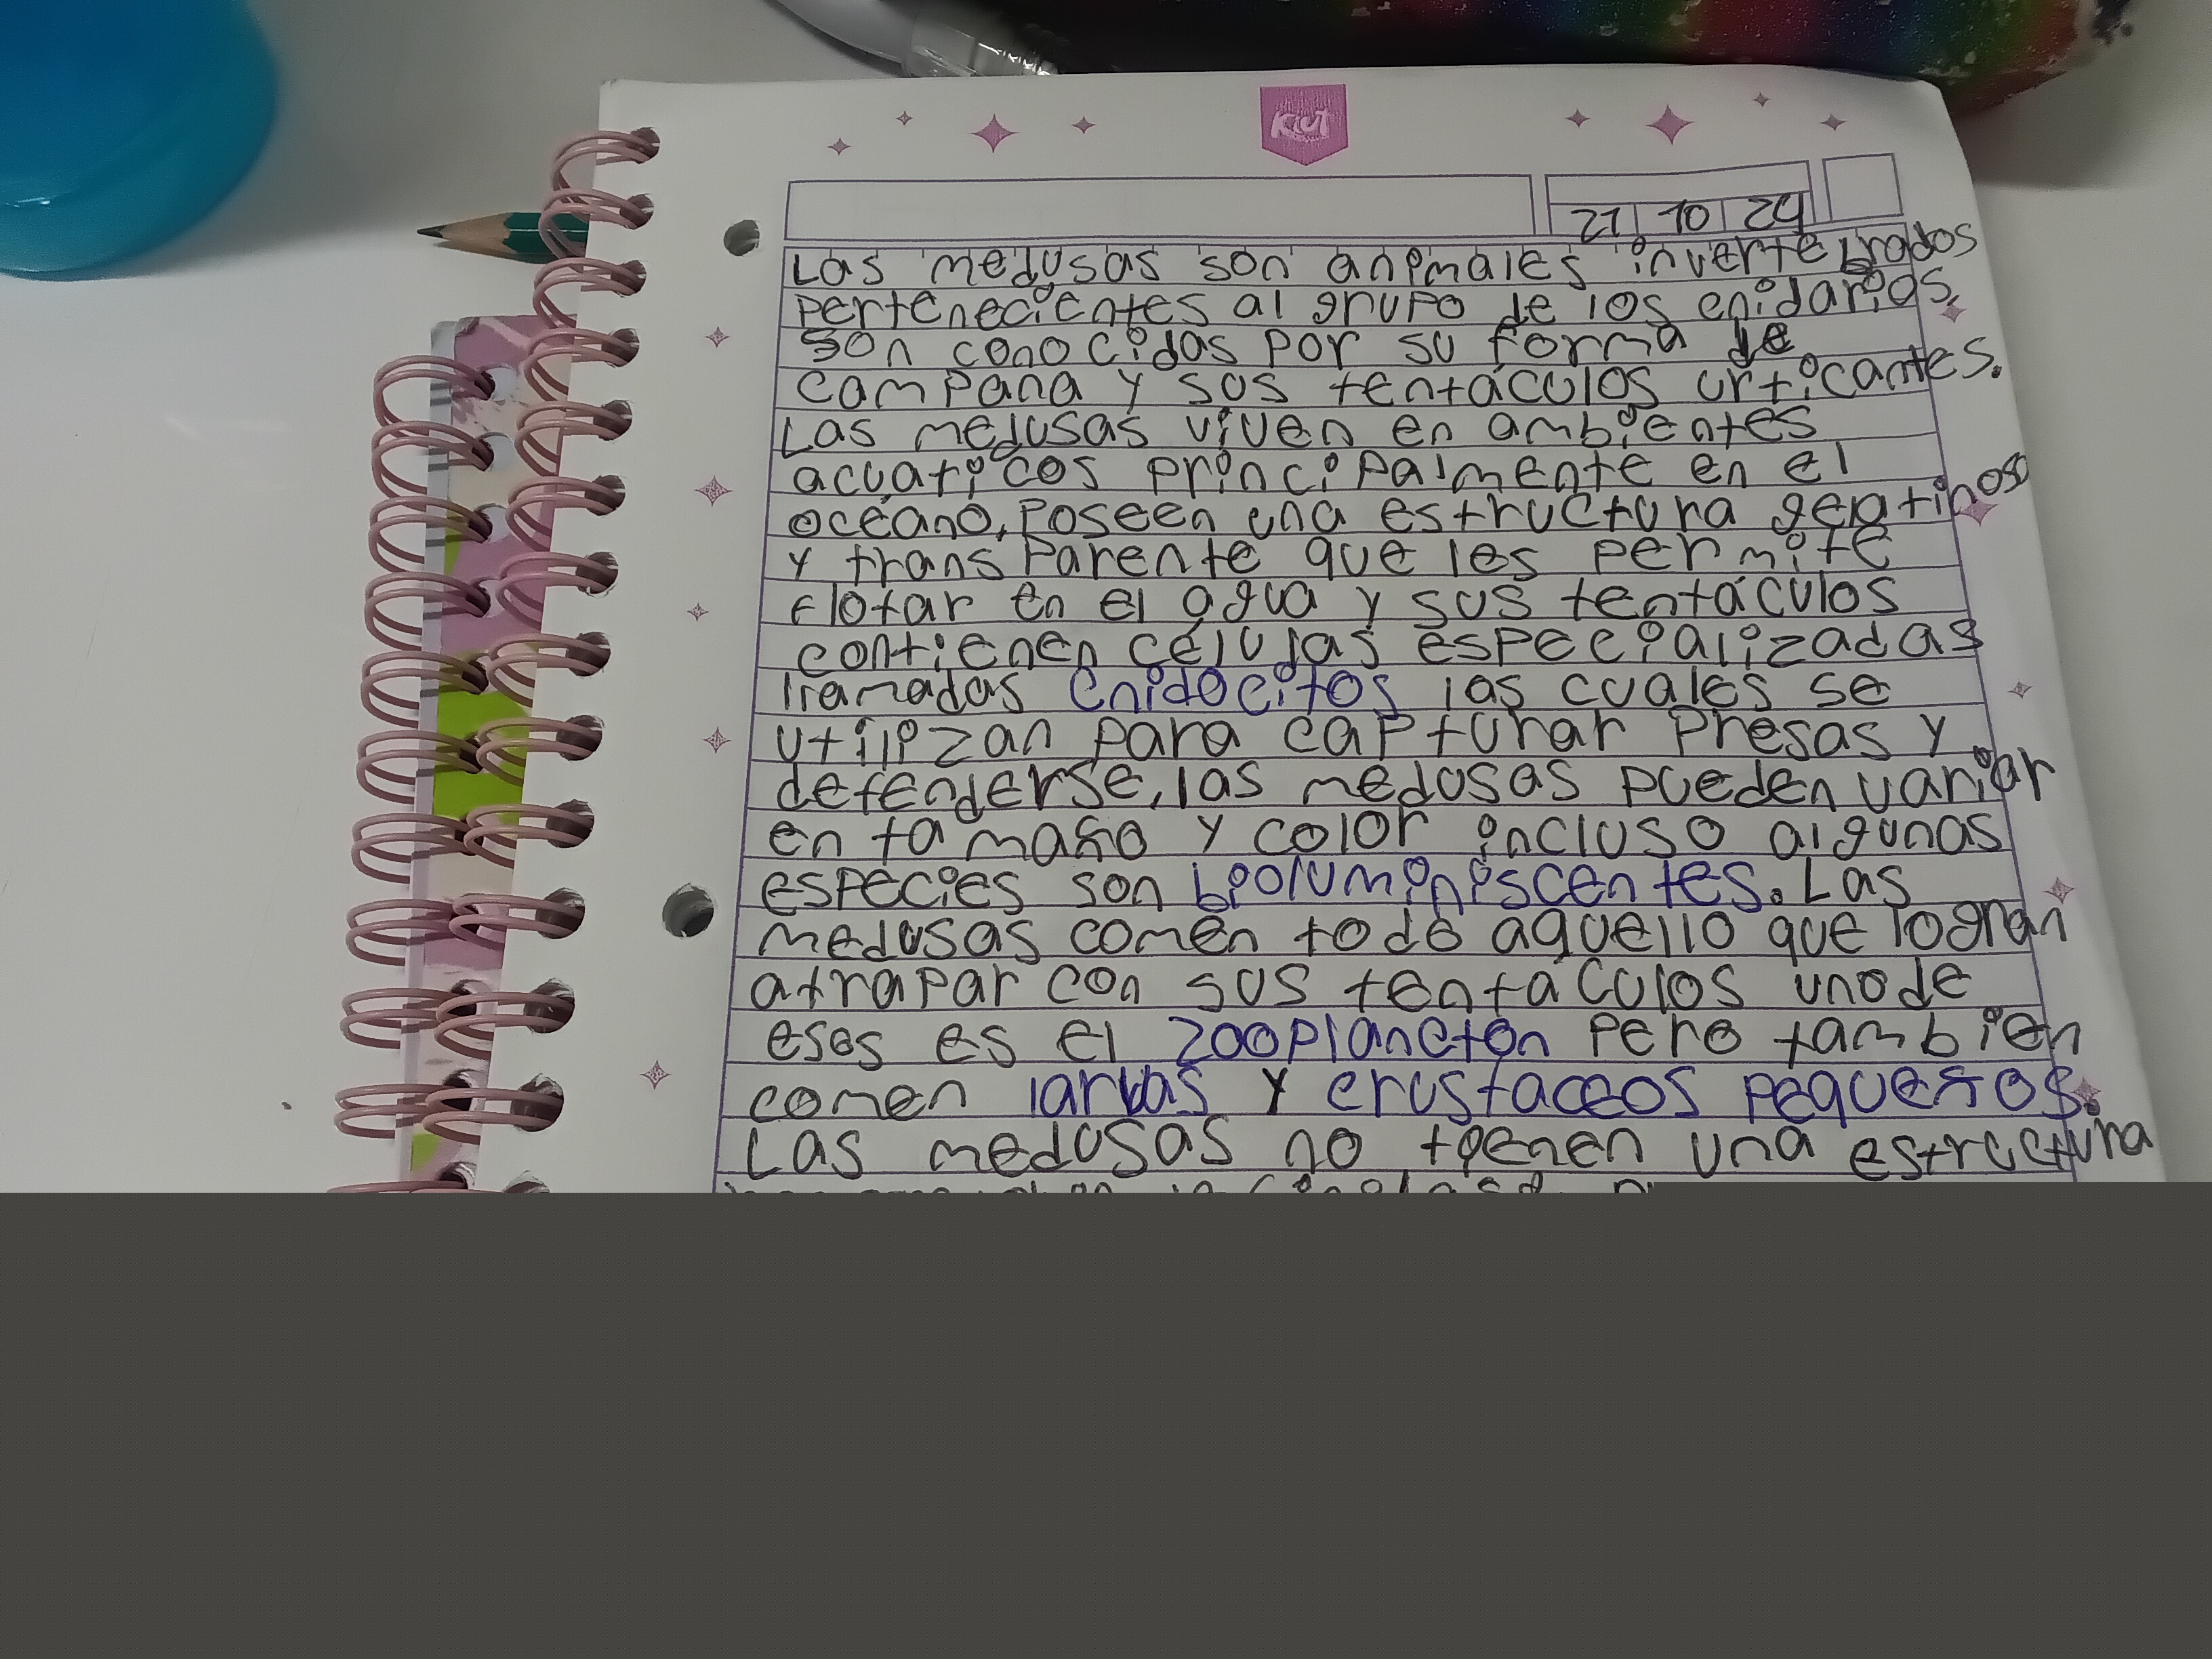 Kiut
21 10 24
Las medusas son animales invertebrados
pertenecientes al grupo de los cnidarios.
Son conocidas por su forma de
campana y sus tentáculos urticantes.
Las medusas viven en ambientes
acuaticos principalmente en el
océano, Poseen una estructura
y transparente que les permite
flotar en el agua y sus tentáculos
contienen células especializadas
llamadas cnidocitos las cuales se
utilizan para capturar presas y
defenderse, las medusas pueden variar
en tamaño y color incluso algunas
especies son bioluminiscentes. Las
medusas comen todo aquello que logran
atrapar con sus tentáculos uno de
esos es el zooplancton pero tambien
comen larvas y crustaceos pequeños.
Las medusas no tienen una estructura